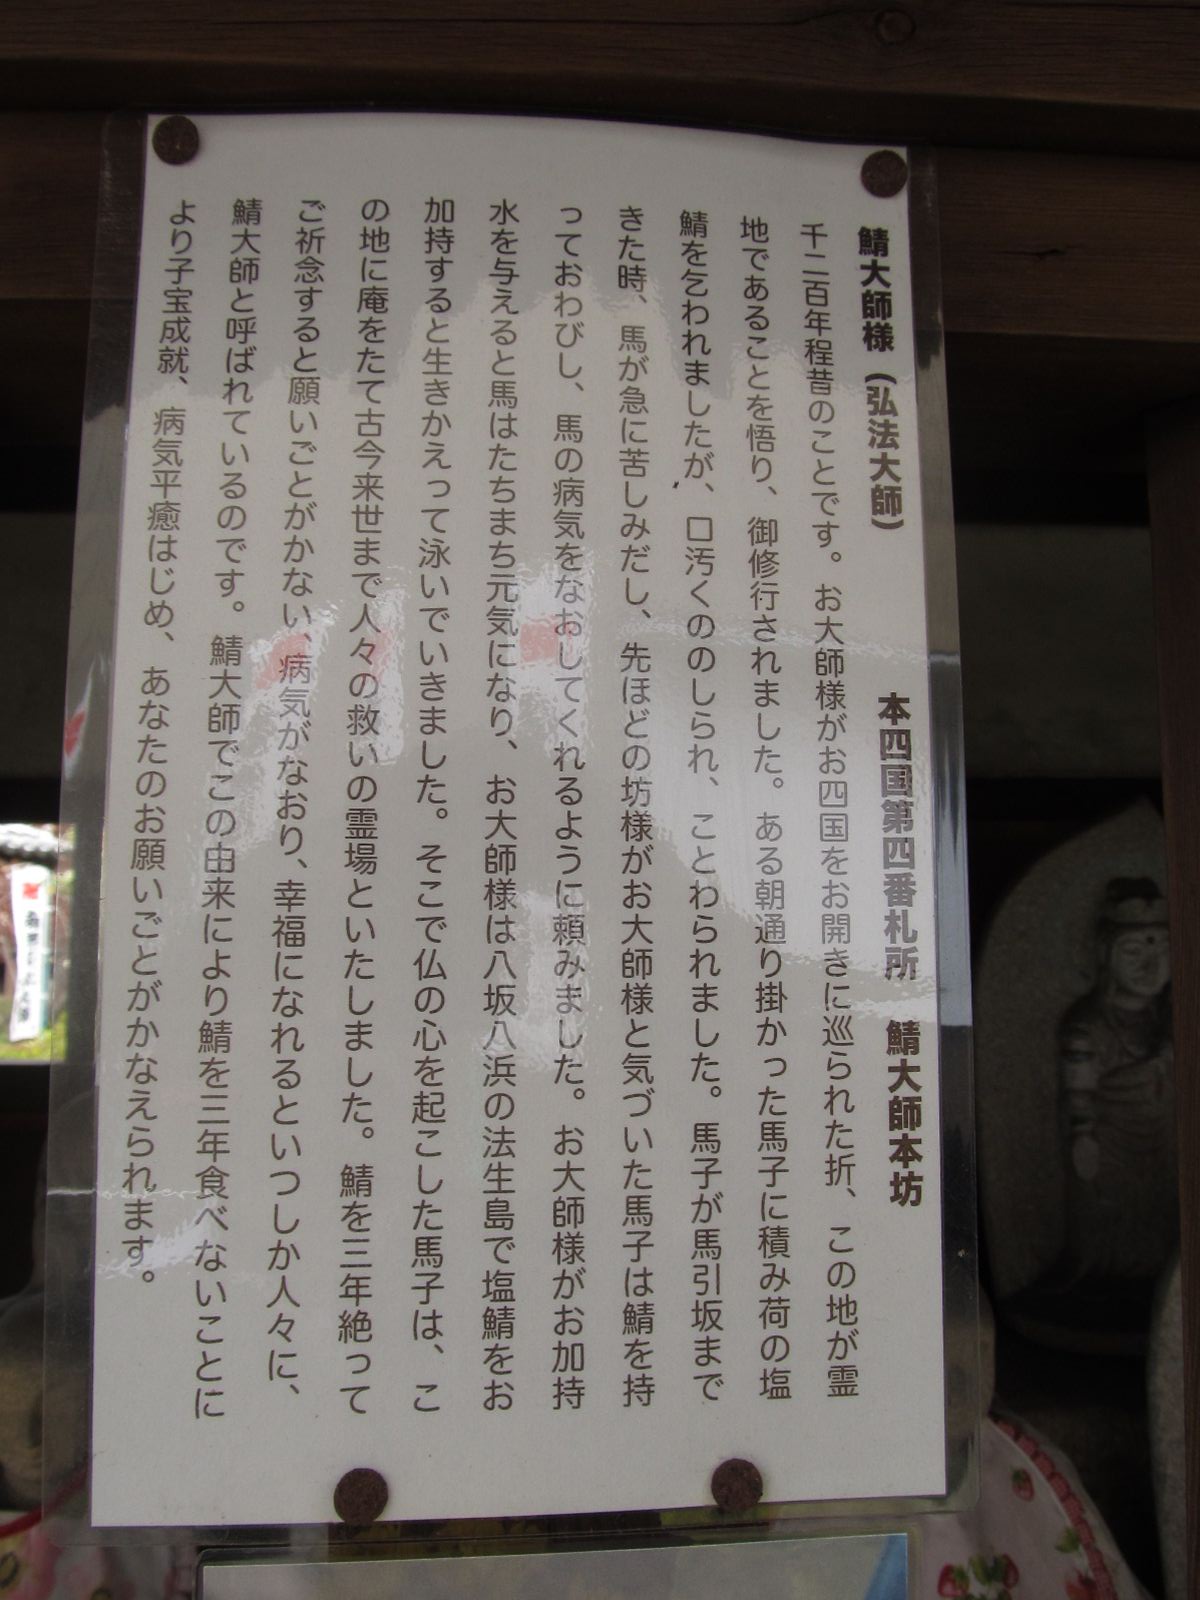 鯖大師様（弘法大師）　本四国第四番札所　鯖大師本坊
千二百年程昔のことです。お大師様がお四国をお開きに巡られた折、この地が霊
地であることを悟り、御修行されました。ある朝通り掛かった馬子に積み荷の塩
鯖を乞われましたが、口汚くののしられ、ことわられました。馬子が馬引坂まで
きた時、馬が急に苦しみだし、先ほどの坊様がお大師様と気づいた馬子は鯖を持
っておわびし、馬の病気をなおしてくれるように頼みました。お大師様がお加持
水を与えると馬はたちまち元気になり、お大師様は八坂八浜の法生島で塩鯖をお
加持すると生きかえって泳いでいきました。そこで仏の心を起こした馬子は、こ
の地に庵をたて古今来世まで人々の救いの霊場といたしました。鯖を三年絶って
ご祈念すると願いごとがかない、病気がなおり、幸福になれるといつしか人々に、
鯖大師と呼ばれているのです。鯖大師でこの由来により鯖を三年食べないことに
より子宝成就、病気平癒はじめ、あなたのお願いごとがかなえられます。